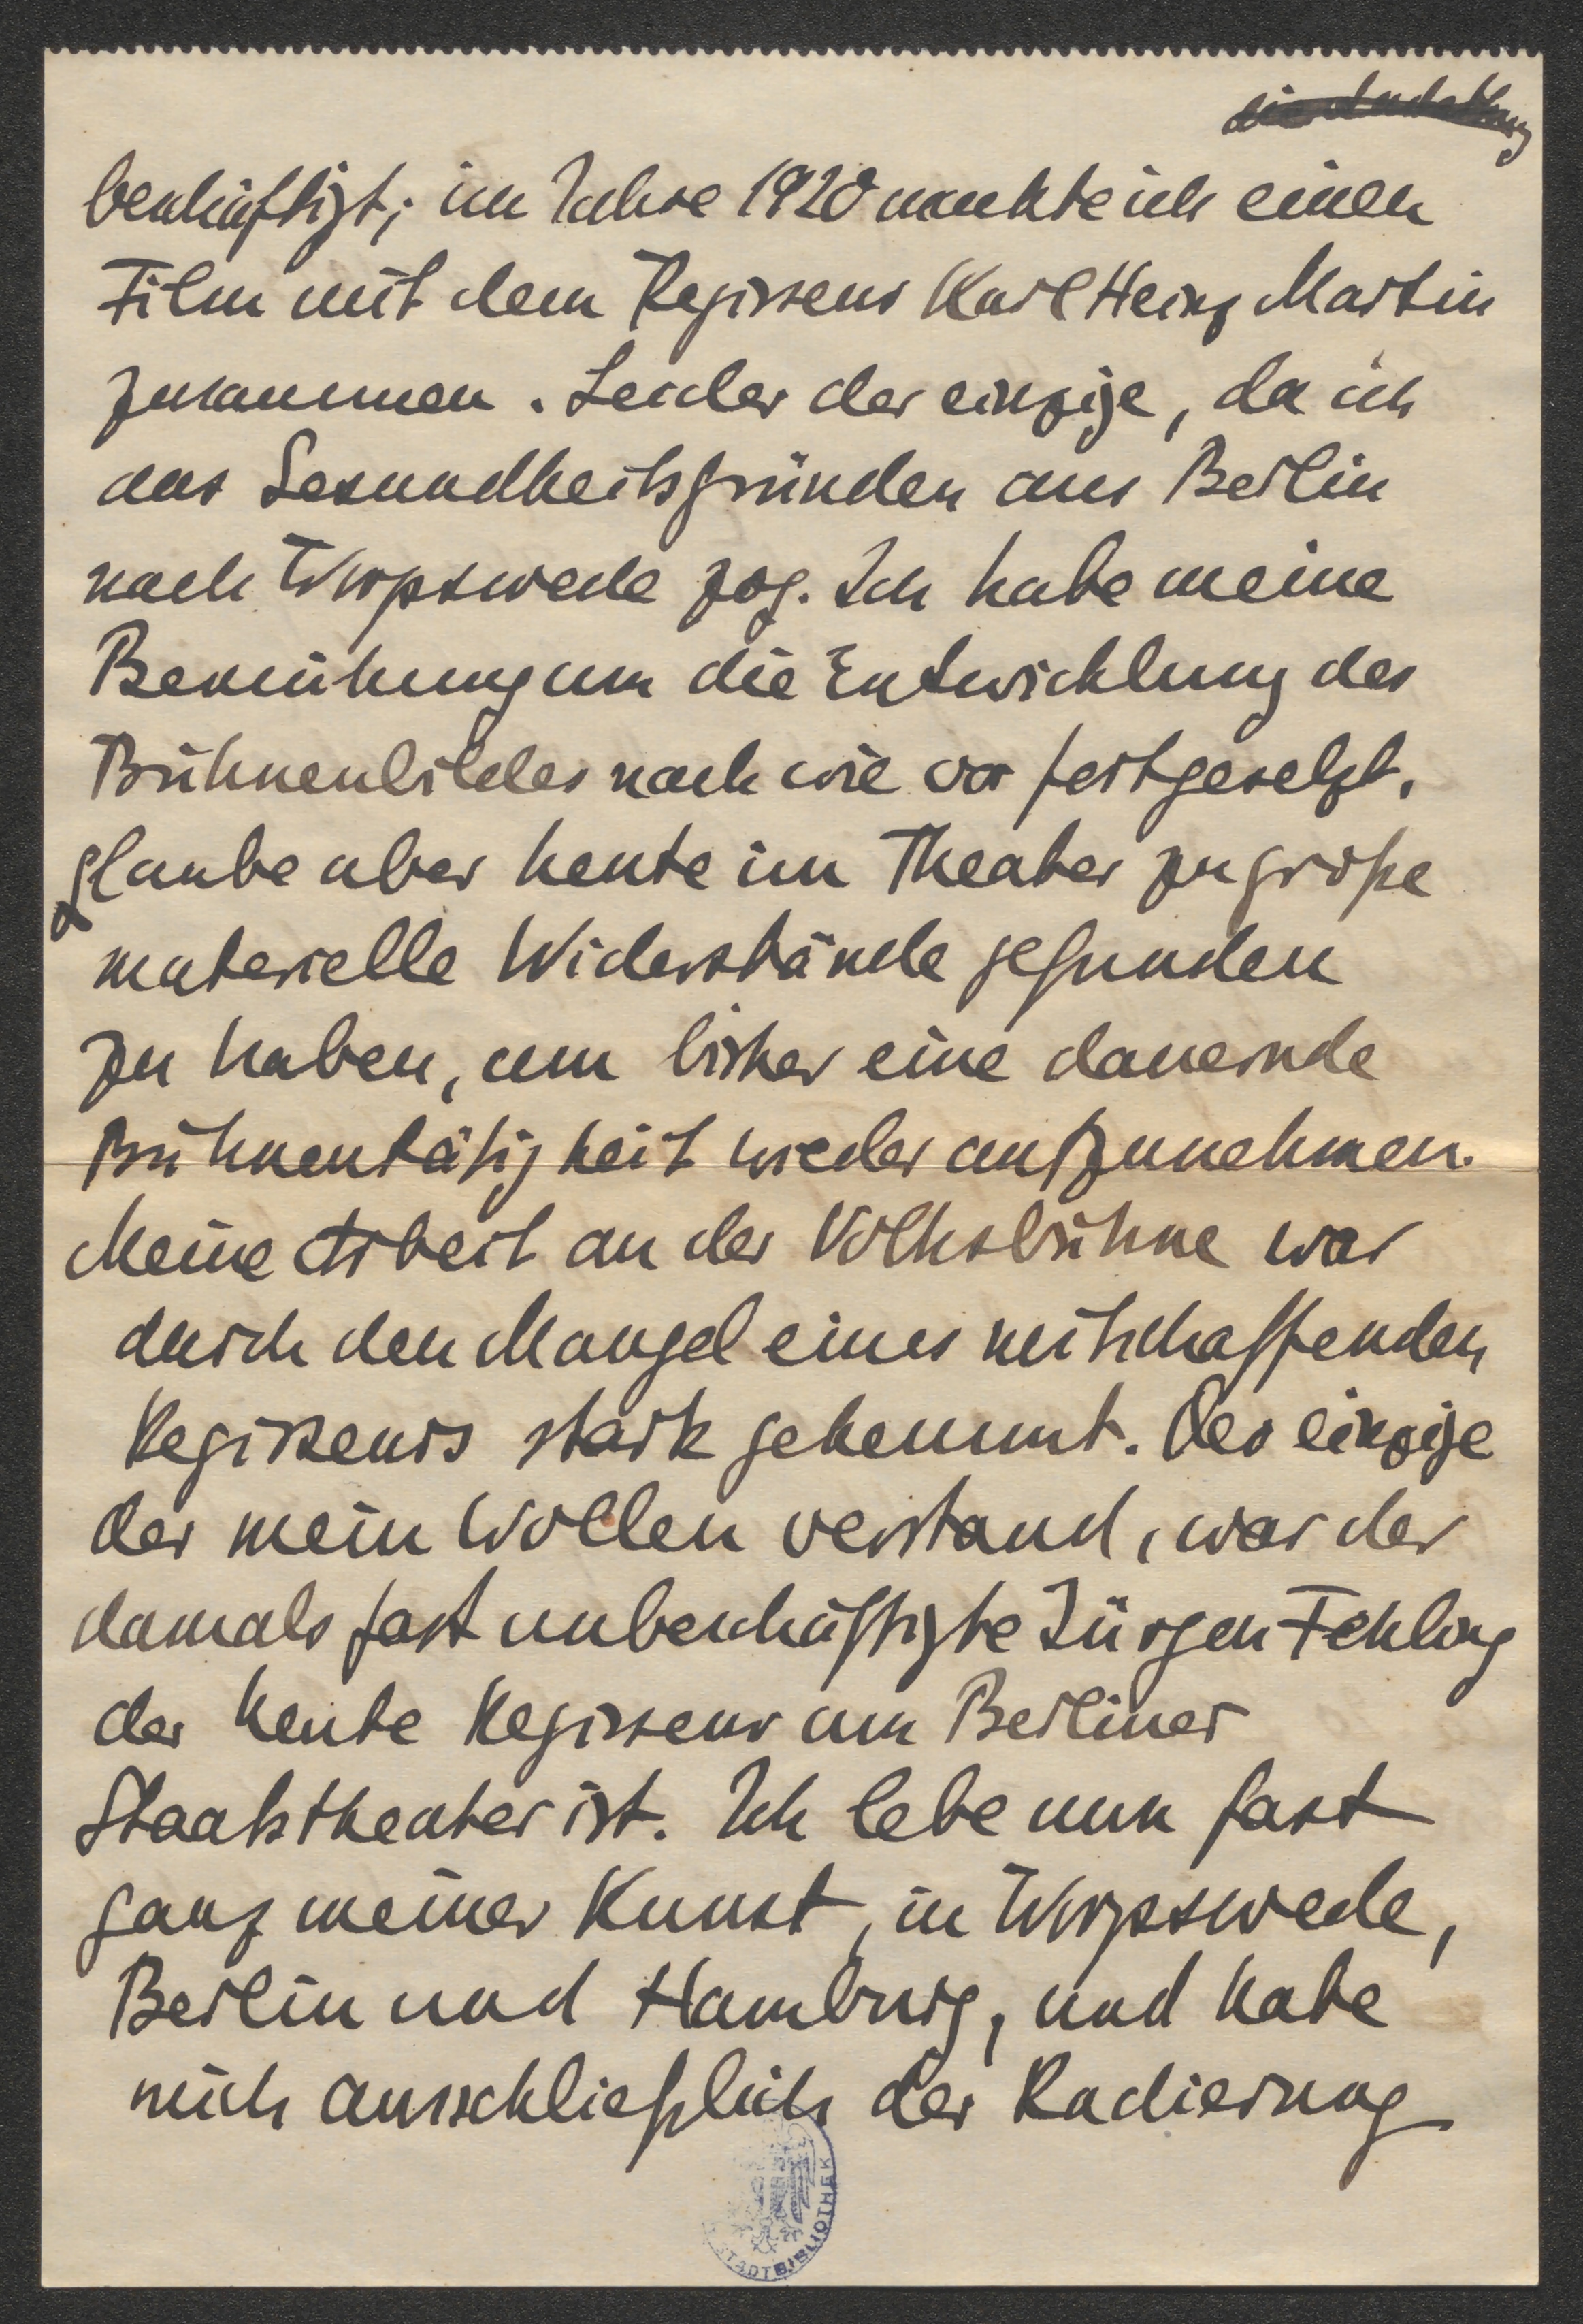 beschäftigt; im Jahre 1920 machte ich einen
Film mit dem Regisseur Karl Heinz Martin
zusammen. Leider der einzige, da ich
aus Gesundheitsgründen aus Berlin
nach Worpswede zog. Ich habe meine
Bemühung um die Entwicklung des
Bühnenbildes nach wie vor fortgesetzt.
glaube aber heute im Theater zu große
materielle Widerstände gefunden
zu haben, um bisher eine dauernde
Bühnentätigkeit wieder aufzunehmen.
Meine Arbeit an der Volksbühne war
durch den Mangel eines mitschaffenden
Regisseurs stark gehemmt. Der einzige
der mein Wollen verstand, war der
damals fast unbeschäftigte Jürgen Fehling
der heute Regisseur am Berliner
Staatstheater ist. Ich lebe nun fast
ganz meiner Kunst, in Worpswede,
Berlin und Hamburg, und habe
mich ausschließlich der Radierung
STADTBIBLIOTHEK